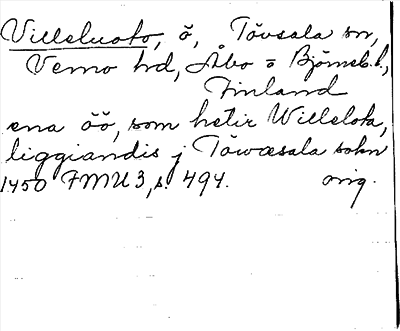 Villsluoto, ö, Tövsala sn,
Vemo hd, Åbo o Björneb. l.,
Finland
ena öö, som hetir Willslota,
liggiandis j Töwæsala sokn
1450 FMU 3, s. 494. orig.